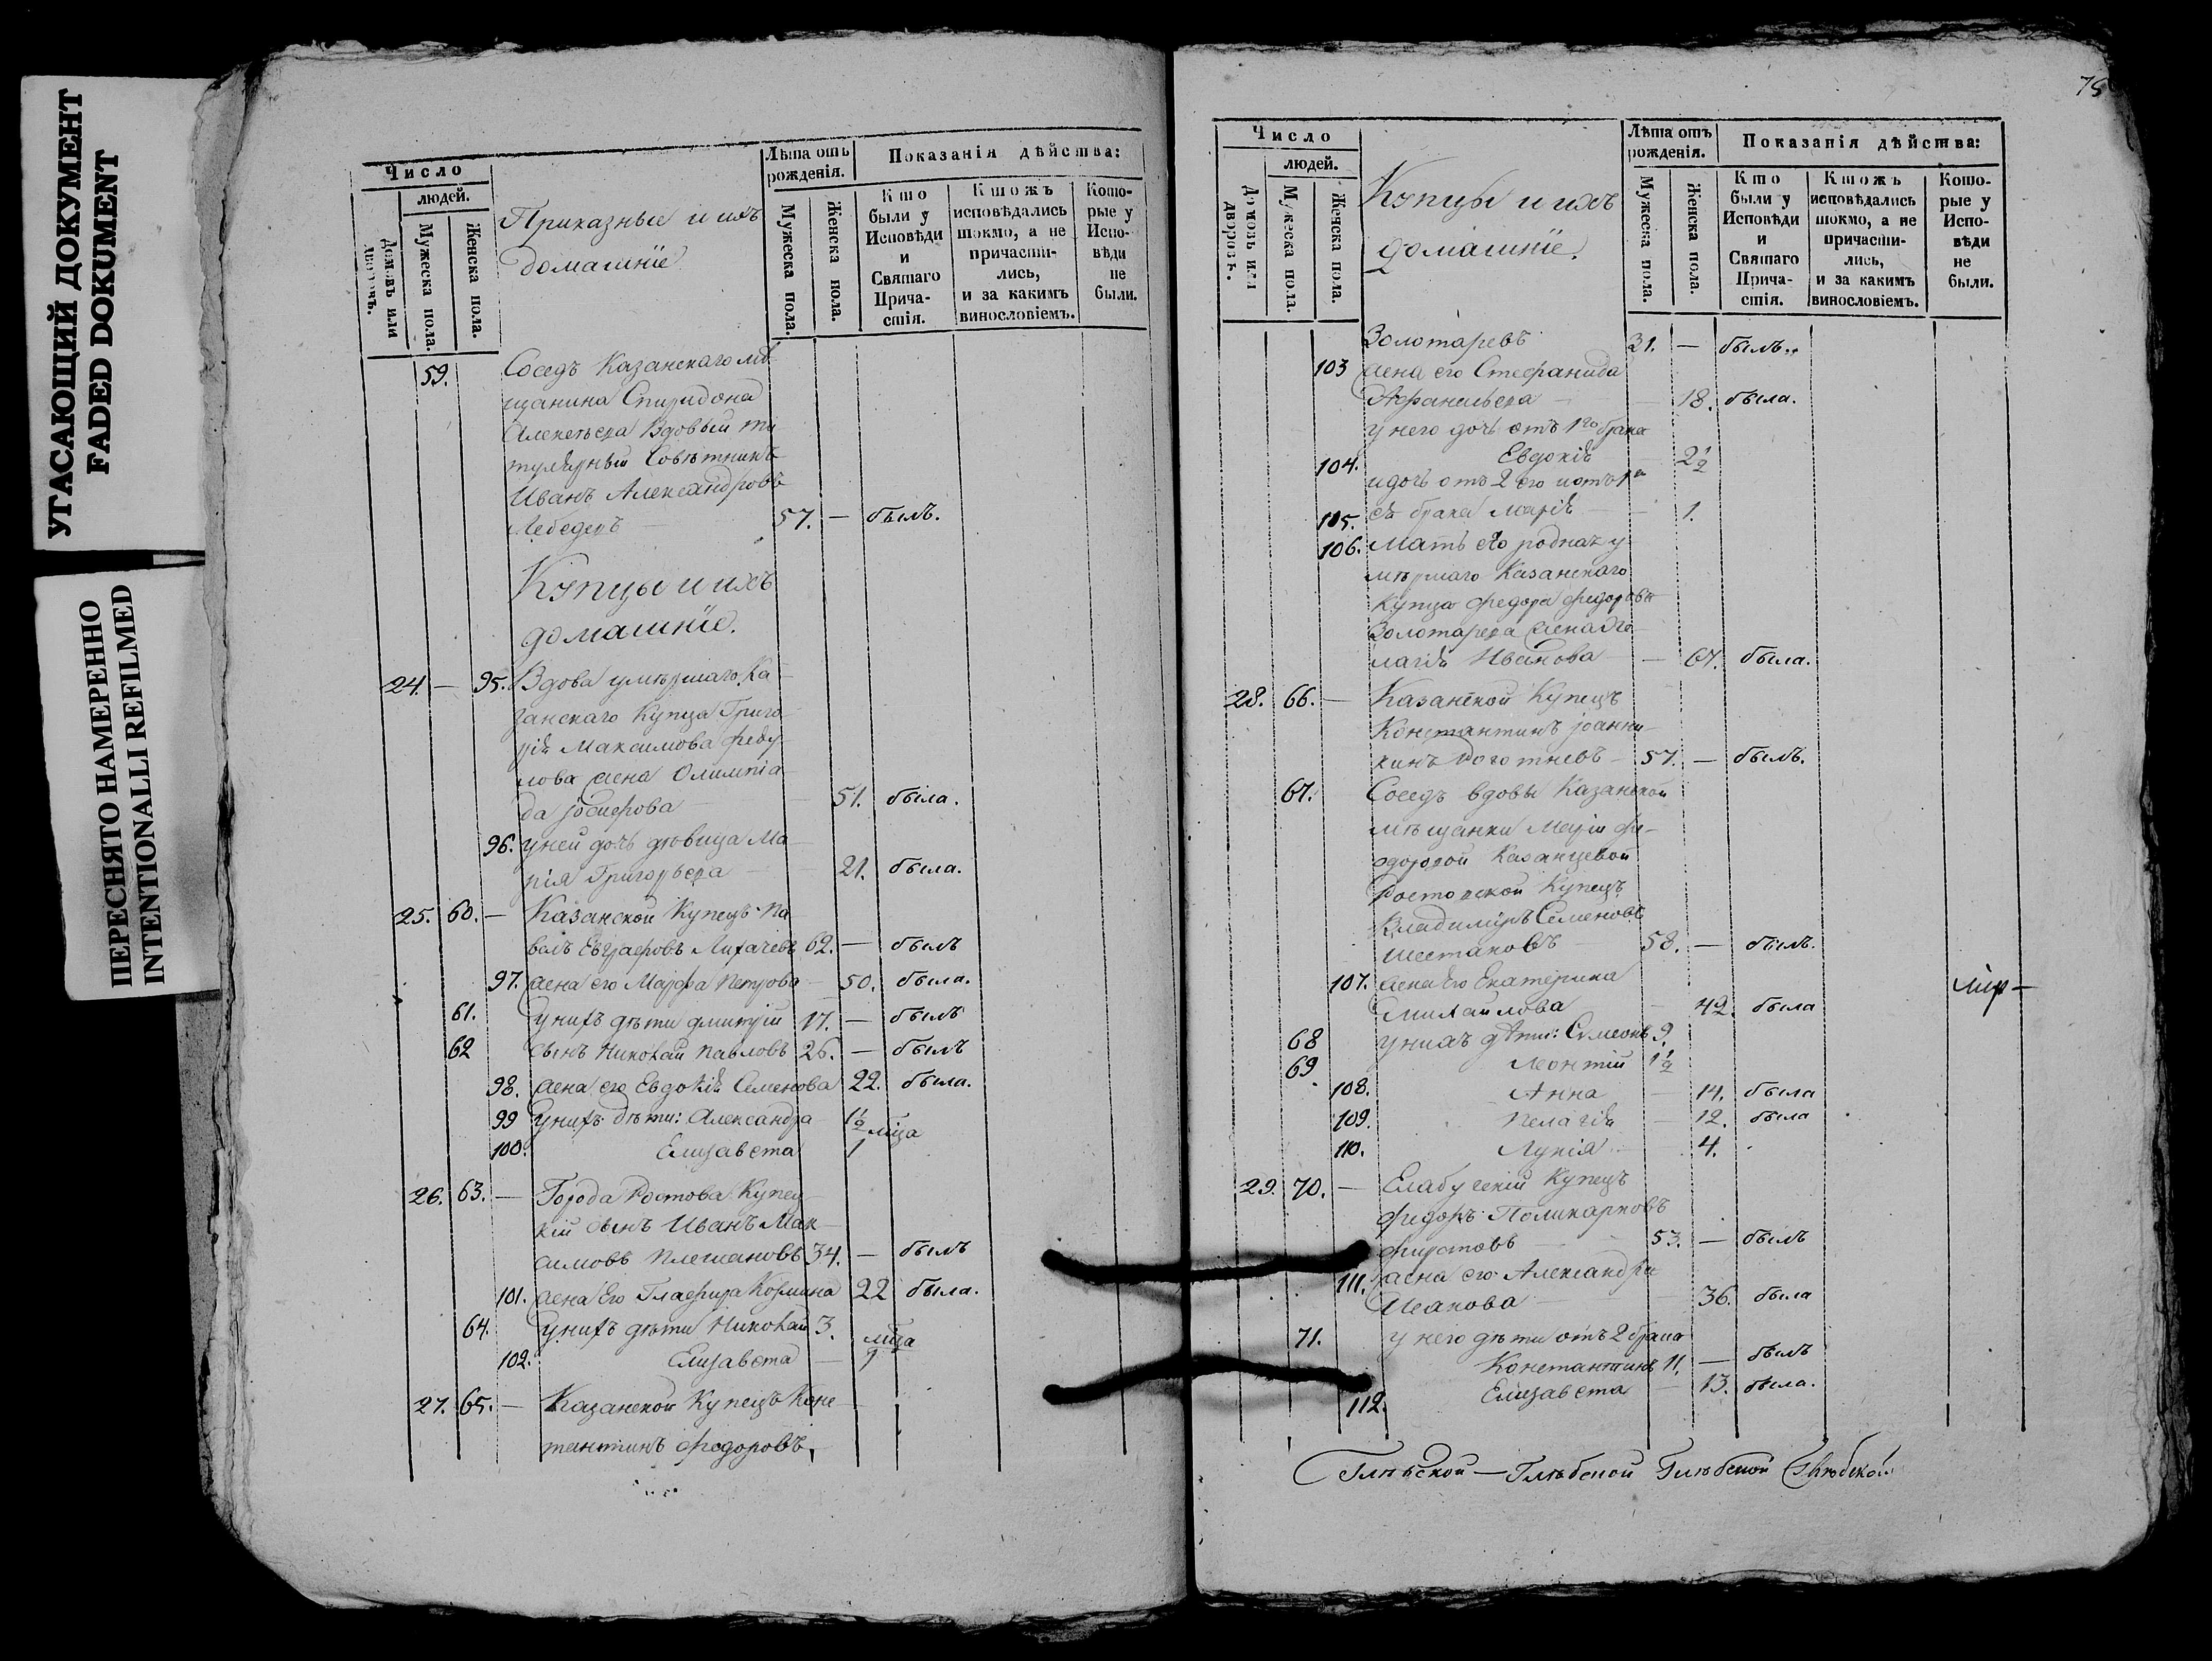 УГАСАЮЩИЙ ДОКУМЕНТ
FADED DOKUMENT
ПЕРЕСНЯТО НАМЕРЕННО
INTENTIONALLI REFILMED
Число
людей.
Домовъ или дворовъ.
Мужеска пола.
Женска пола.
Приказные и ихъ
домашніе
Лѣта отъ рожденія.
Мужеска пола.
Женска пола.
Показанія дѣйства:
Кто были у Исповѣди и Святаго Прича-стія.
Ктожъ исповѣдались токмо, а не причасти-лись, и за какимъ винословіемъ.
Кото-рые у Испо-вѣди не были.
59. Соседъ Казанскаго мѣ
щанина Спиридона
Алексѣева Вдовый ти
тулярный Совѣтникъ
Иванъ Александровъ
Лебедевъ 57. — былъ.
Купцы и ихъ
домашніе.
24. — 95. Вдова умѣршаго Ка
занскаго Купца Григо
рія Максимова Феду
лова жена Олимпіа
да Іосифова 51. была.
96. у ней дочь дѣвица Ма
рія Григорьева 21. была.
25. 60. — Казанской Купецъ Па
велъ Евграфовъ Лихачевъ 62. — былъ
97. жена его Марфа Петрова 50. была.
61. У нихъ дѣти Дмитрій 17. — былъ
62 сынъ Николай Павловъ 26. — былъ
98. жена его Евдокія Семенова 22. была.
99 У нихъ дѣти: Александра 1½
100. Елизавета 1 мца
26. 63. — Города Ростова Купец
кій сынъ Иванъ Мак
симовъ Плешановъ 34. — былъ
101. жена Его Глафира Козмина 22 была.
64. У нихъ дѣти Николай 3.
102. Елизавета — 1 мца
27. 65. — Казанской Купецъ Конс
тантинъ Федоровъ
78
Число
людей.
Домовъ или дворовъ.
Мужеска пола.
Женска пола.
Купцы и ихъ
домашніе.
Лѣта отъ рожденія.
Мужеска пола.
Женска пола.
Показанія дѣйства:
Кто были у Исповѣди и Святаго Прича-стія.
Ктожъ исповѣдались токмо, а не причасти-лись, и за какимъ винословіемъ.
Кото-рые у Испо-вѣди не были.
Золотаревъ 31. — былъ.
103 жена его Стефанида
Афанасьева 18. была.
у него дочь отъ 1го брака
104. Евдокія 2½
и дочь отъ 2го
105. брака Марія 1.
106. Мать его родная у
мѣршаго Казанскаго
Купца Федора Федорова
Золотарева жена Пе
лагія Иванова — 67. была.
28. 66. — Казанской Купецъ
Константинъ Іоанни
кинъ Роготневъ 57. — былъ.
67. Соседъ вдовы Казанской
мѣщанки Маріи Фе-
одоровой Казанцевой
Ростовской Купецъ
Владимиръ Семеновъ
Шестаковъ 58. — былъ.
107. жена Его Екатерина
Михайлова 42. была
68 у нихъ дѣти: Симеонъ 9.
69 Леонтій 1½
108. Анна 14. была
109. Пелагія 12. была
110. Лукія 4.
29. 70. — Елабугскій Купецъ
Федоръ Поликарповъ
Фирстовъ 53. — былъ
111. жена его Александра
Исакова 36. была
71. у него дѣти отъ 2 брака
Константинъ 11. — былъ
112. Елизавета 13. была.
Глѣбской — Глѣбской Глѣбской Глѣбской